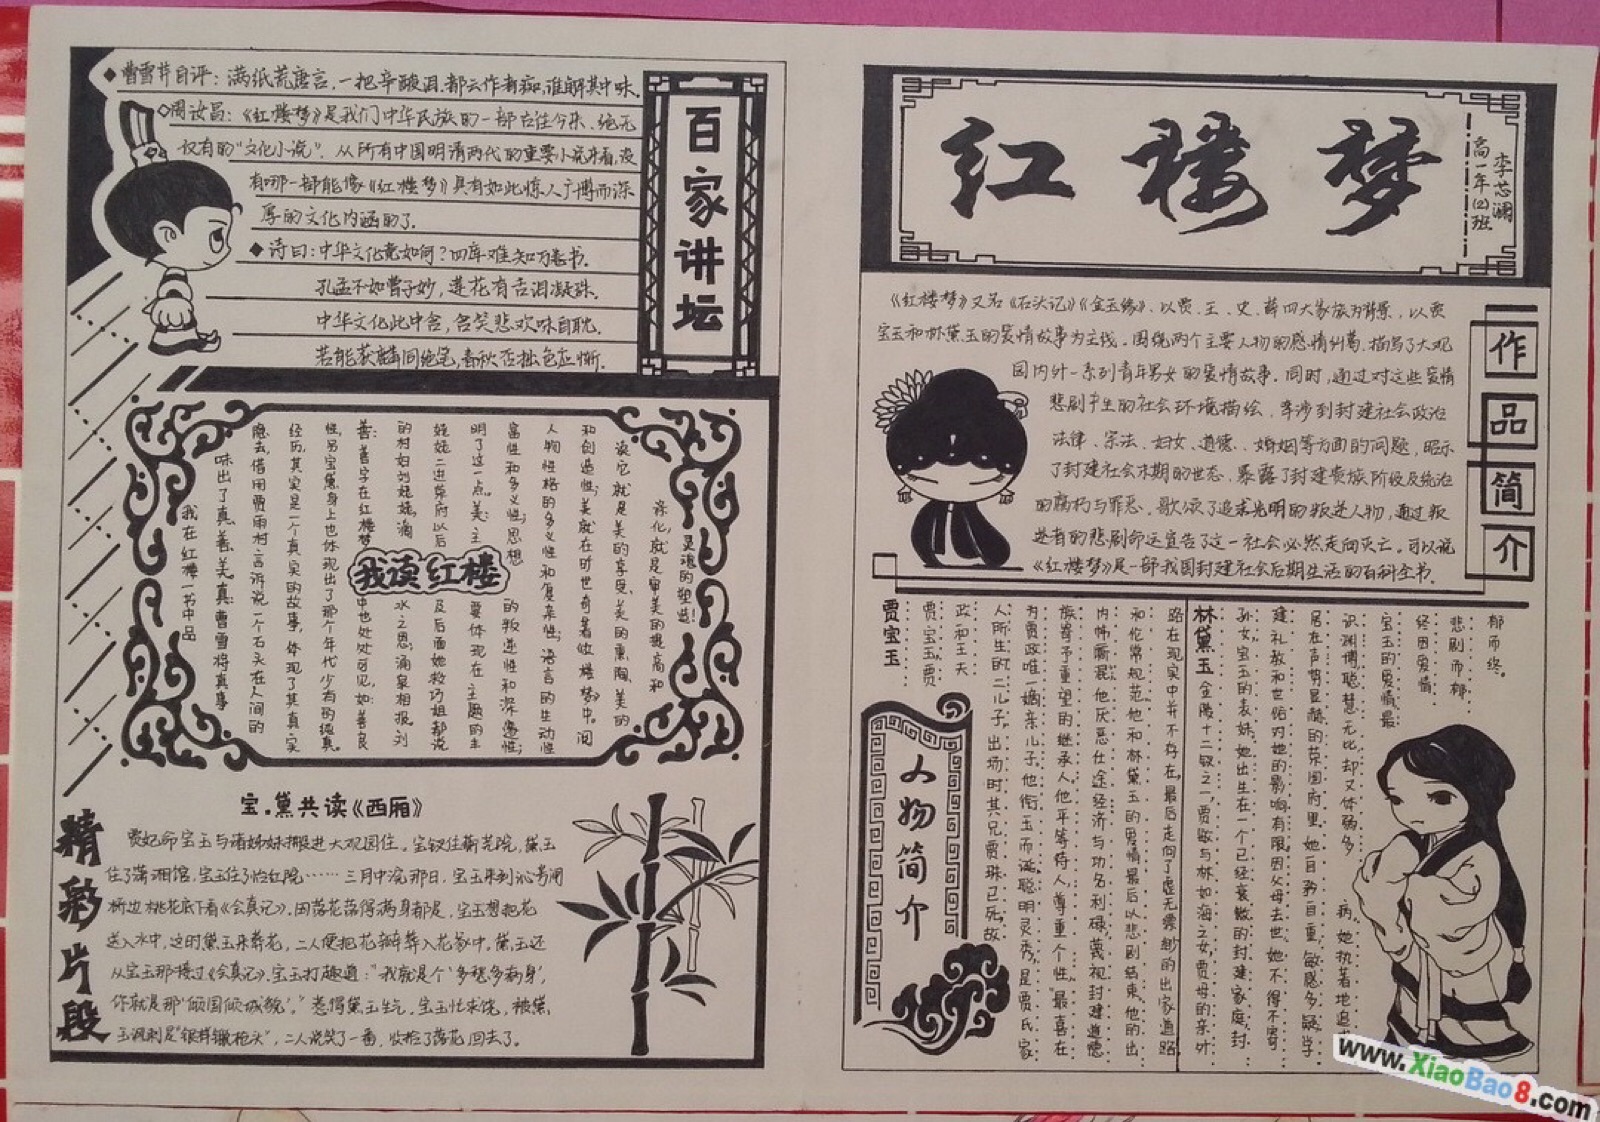 红楼梦
高一年(2)班
李芯澜
作品简介
《红楼梦》又名《石头记》《金玉缘》，以贾、王、史、薛四大家族为背景，以贾
宝玉和林黛玉的爱情故事为主线。围绕两个主要人物的感情纠葛，描写了大观
园内外一系列青年男女的爱情故事。同时，通过对这些爱情
悲剧产生的社会环境描绘，牵涉到封建社会政治
法律、宗法、妇女、道德、婚姻等方面的问题，昭示
了封建社会末期的世态，暴露了封建贵族阶段及统治
的腐朽与罪恶。歌颂了追求光明的叛逆人物，通过叛
逆者的悲剧命运宣告了这一社会必然走向灭亡。可以说
《红楼梦》是一部我国封建社会后期生活的百科全书。
人物简介
贾宝玉
贾宝玉，贾
政和王夫
人所生的二儿子。出场时其兄贾珠已死，故
为贾政唯一嫡亲儿子。他衔玉而诞，聪明灵秀，是贾氏家
族寄予重望的继承人。他平等待人，尊重个性，最喜在
内帏厮混。他厌恶仕途经济与功名利禄，蔑视封建道德
和伦常规范。他和林黛玉的爱情最后以悲剧结束，他的出
路在现实中并不存在，最后走向了虚无缥缈的出家道路
林黛玉 金陵十二钗之一，贾敏与林如海之女，贾母的亲外
孙女，宝玉的表妹。她出生在一个已经衰微的封建家庭，封
建礼教和世俗对她的影响有限。因父母去世，她不得不寄
居在声势显赫的荣国府里。她自矜自重，敏感多疑，学
识渊博，聪慧无比，却又体弱多
病。她执著地追
宝玉的爱情，最
终因爱情
悲剧而郁
郁而终。
百家讲坛
曹雪芹自评：满纸荒唐言，一把辛酸泪，都云作者痴，谁解其中味。
周汝昌：《红楼梦》是我们中华民族的一部古往今来、绝无
仅有的“文化小说”。从所有中国明清两代的重要小说来看，没
有哪一部能像《红楼梦》具有如此惊人广博而深
厚的文化内涵的了。
诗曰：中华文化竟如何？四库难知万卷书。
孔孟不如曹子妙，莲花有舌泪凝珠。
中华文化此中含，含笑悲欢味自耽。
若能获麟同绝笔，春秋否拙色应惭。
我读红楼
我在红楼一书中品
味出了真、善、美。真：曹雪将真事
隐去，借用贾雨村言诉说一个石头在人间的
经历，其实是一个真实的故事，体现了其真实
性，另宝黛身上也体现出了那个年代少有的纯真。
善：善字在红楼梦中也处处可见，如：善良
的村妇刘姥姥，滴水之恩，涌泉相报。刘
姥姥二进荣府以后及后面她救巧姐都说
明了这一点。美：主要体现在主题的丰
富性和多义性；思想的叛逆性和深邃性；
人物性格的多义性和复杂性；语言的生动性
和创造性；美就在时世奇著《红楼梦》中。阅
读它就是美的享受、美的熏陶、美的
涤化，就是审美的提高和
灵魂的塑造！
精彩片段
宝.黛共读《西厢》
贾妃命宝玉与诸姊妹搬进大观园住。宝钗住蘅芜院，黛玉
住了潇湘馆，宝玉住了怡红院……三月中浣那日，宝玉来到沁芳闸
桥边桃花底下看《会真记》，因落花落得满身都是，宝玉想把花
送入水中，这时黛玉来葬花，二人便把花瓣葬入花冢中，黛玉还
从宝玉那接过《会真记》，宝玉打趣道：“我就是个‘多愁多病身’，
你就是那‘倾国倾城貌’。”惹得黛玉生气，宝玉忙求饶，被黛
玉讽刺是“银样镴枪头”，二人说笑了一番，收拾了落花，回去了。
www.XiaoBao8.com